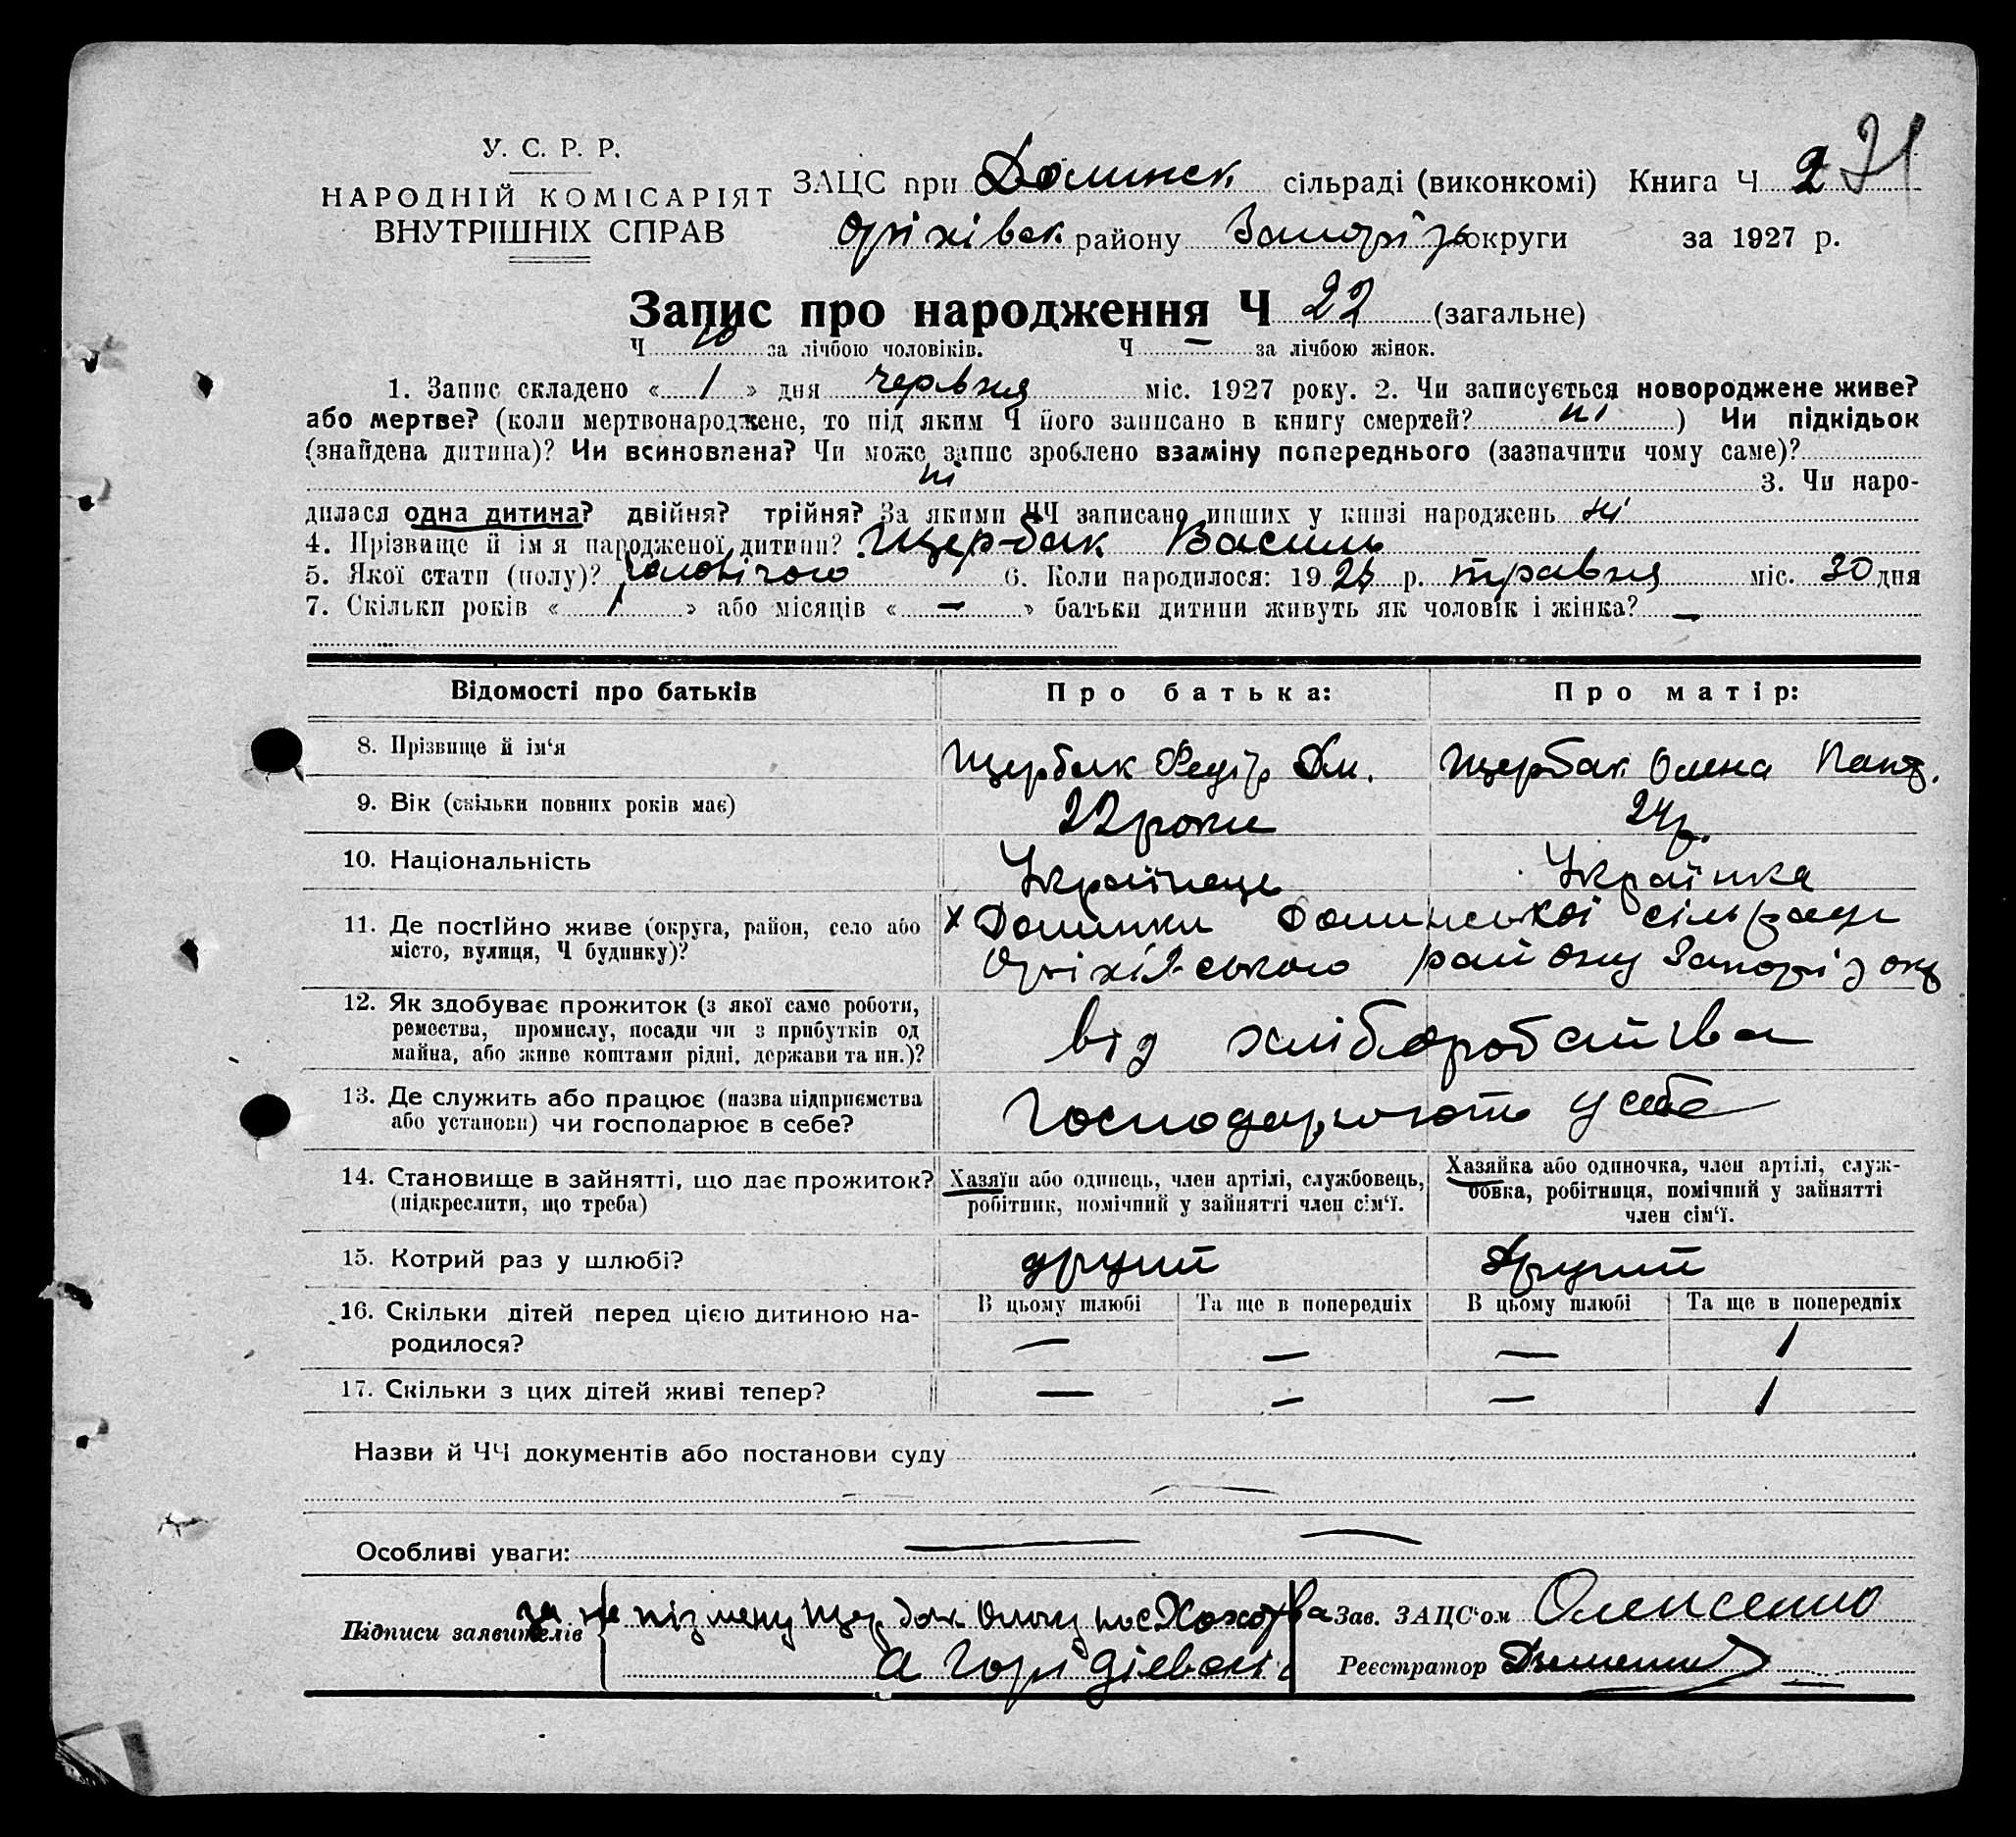 У. С. Р. Р.
НАРОДНІЙ КОМІСАРІЯТ
ВНУТРІШНІХ СПРАВ
ЗАЦС при Долинск сільраді (виконкомі) Книга Ч 2 71
Оріхівск району Запоріж округи за 1927 р.
Запис про народження Ч 22 (загальне)
Ч 10 за лічбою чоловіків. Ч — за лічбою жінок.
1. Запис складено « 1 » дня червня міс. 1927 року. 2. Чи записується новороджене живе?
або мертве? (коли мертвонароджене, то під яким Ч його записано в книгу смертей? ні ) Чи підкідьок
(знайдена дитина)? Чи всиновлена? Чи може запис зроблено взаміну попереднього (зазначити чому саме)?
ні 3. Чи наро-
дилася одна дитина? двійня? трійня? За якими ЧЧ записано инших у книзі народжень ні
4. Прізвище й ім'я народженої дитини? Щербак Василь
5. Якої стати (полу)? чоловічого 6. Коли народилося: 19 р. травня міс. 30 дня
7. Скільки років « 1 » або місяців « — » батьки дитини живуть як чоловік і жінка? —
Відомості про батьків Про батька: Про матір:
8. Прізвище й ім'я Щербак Федір Дм. Щербак Олена Пант.
9. Вік (скільки повних років має) 22 роки 24 р.
10. Національність Українець Українка
11. Де постійно живе (округа, район, село або місто, вулиця, Ч будинку)?
х Долинки Долинської сільради
Оріхівського району Запоріз окр
12. Як здобуває прожиток (з якої саме роботи,
ремества, промислу, посади чи з прибутків од
майна, або живе коштами рідні, держави та ин.)?
від хліборобства
13. Де служить або працює (назва підприємства
або установи) чи господарює в себе?
Господарюють у себе
14. Становище в зайнятті, що дає прожиток?
(підкреслити, що треба)
Хазяїн або одинець, член артілі, службовець,
робітник, помічний у зайнятті член сім'ї.
Хазяйка або одиночка, член артілі, служ-
бовка, робітниця, помічний у зайнятті
член сім'ї.
15. Котрий раз у шлюбі? другий другий
16. Скільки дітей перед цією дитиною на-
родилося?
В цьому шлюбі Та ще в попередніх В цьому шлюбі Та ще в попередніх
— — — 1
17. Скільки з цих дітей живі тепер? — — — 1
Назви й ЧЧ документів або постанови суду
Особливі уваги:
Підписи заявителів
за не пізмену Щербак Олену
Зав. ЗАЦС'ом Олексенко
Реєстратор